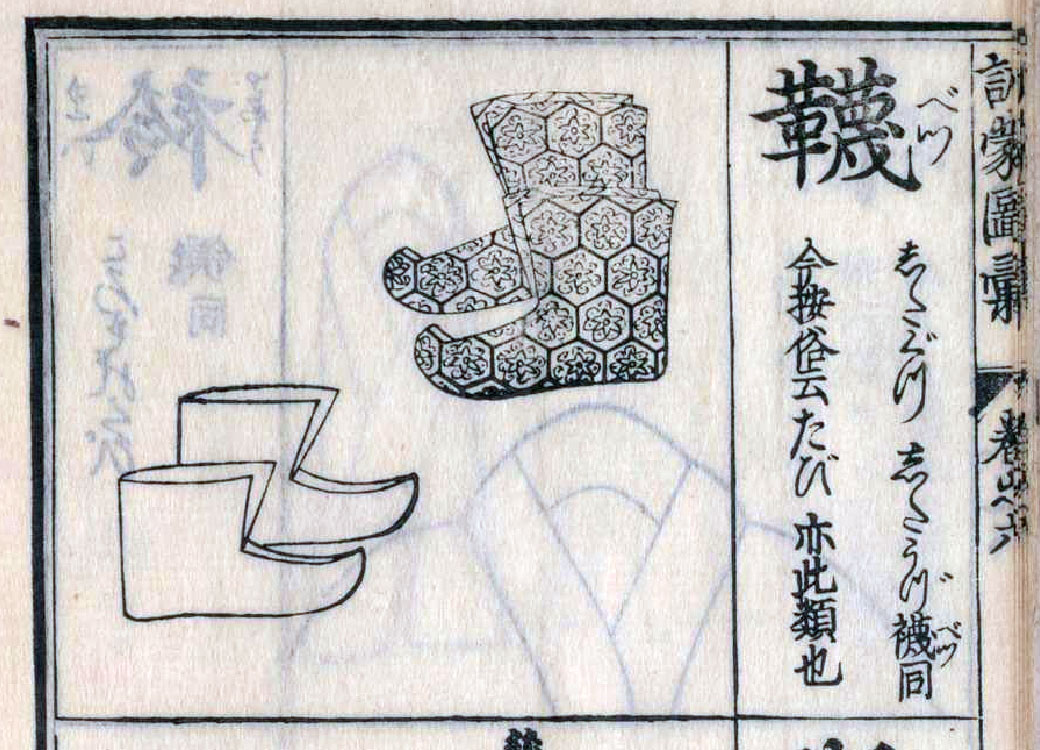 訓蒙圖彙
韈
べつ
志たぐつ 志たうづ 襪同
べつ
今按俗云たび 亦此類也